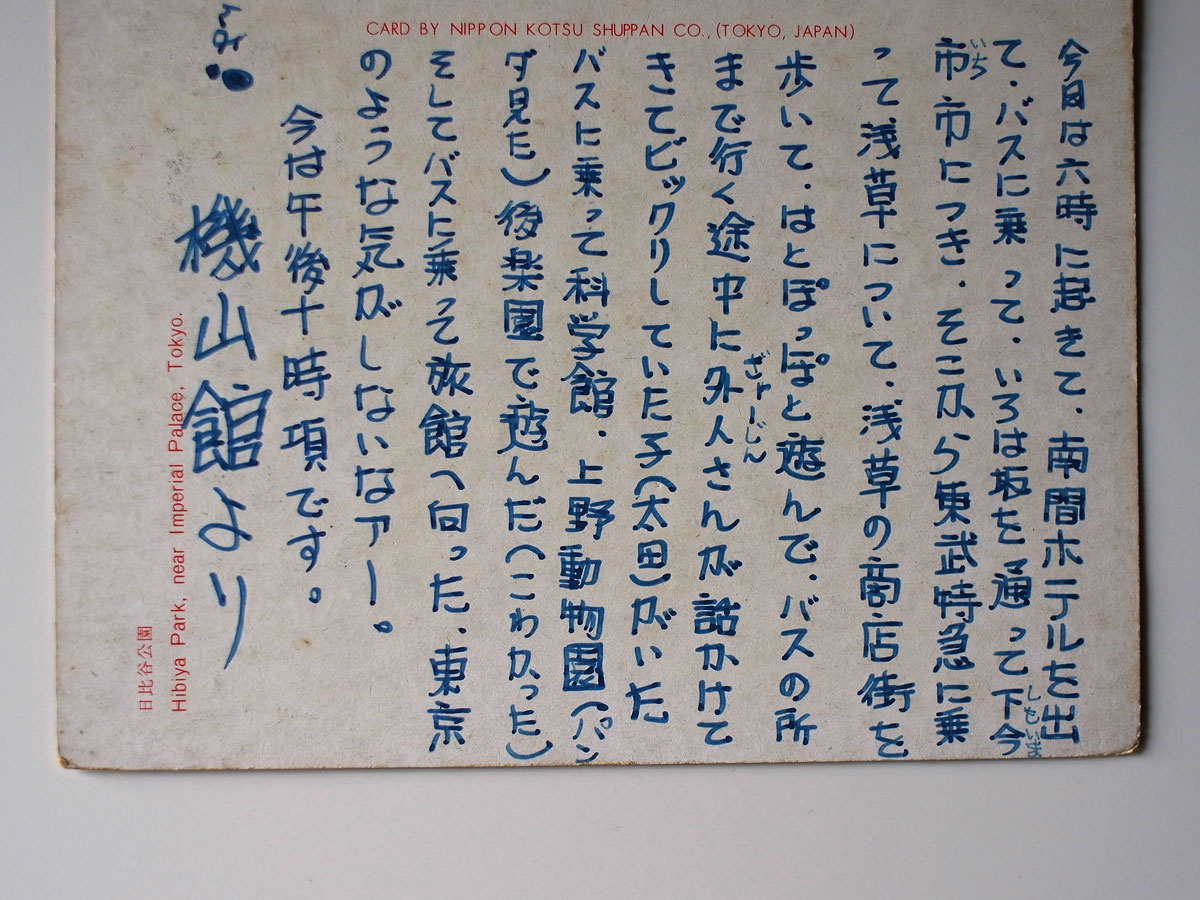 CARD BY NIPPON KOTSU SHUPPAN CO., (TOKYO, JAPAN)
今日は六時に起きて、南間ホテルを出
て、バスに乗って、いろは坂を通って下今
しもいま
市 市につき、そこから東武特急に乗
いち
って浅草について、浅草の商店街を
歩いて、はとぽっぽと遊んで、バスの所
まで行く途中に外人さんが話かけて
がいじん
きてビックリしていた子(太田)がいた
バスに乗って科学館、上野動物園(パン
ダ見た)後楽園で遊んだ(こわかった)
そしてバスに乗って旅館へ向った、東京
のような気がしないなァー。
今は午後十時項です。
機山館より
日比谷公園
Hibiya Park, near Imperial Palace, Tokyo.